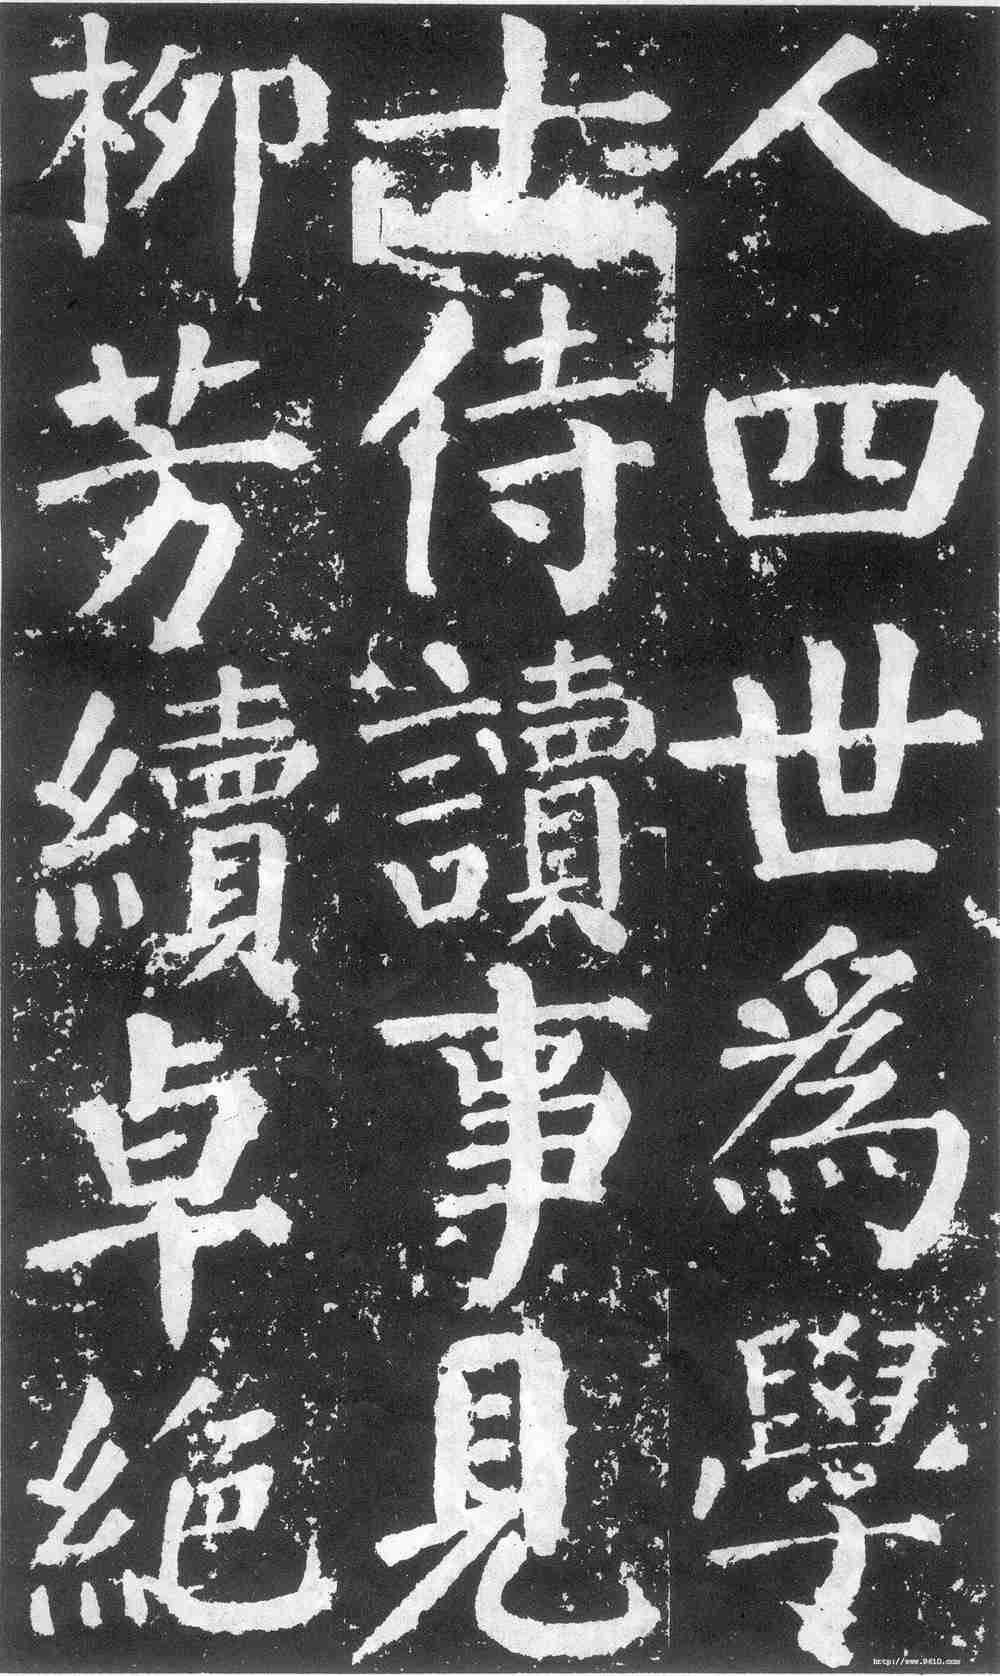 人四世爲學
士侍讀事見
柳芳續卓絕
http://www.9610.com